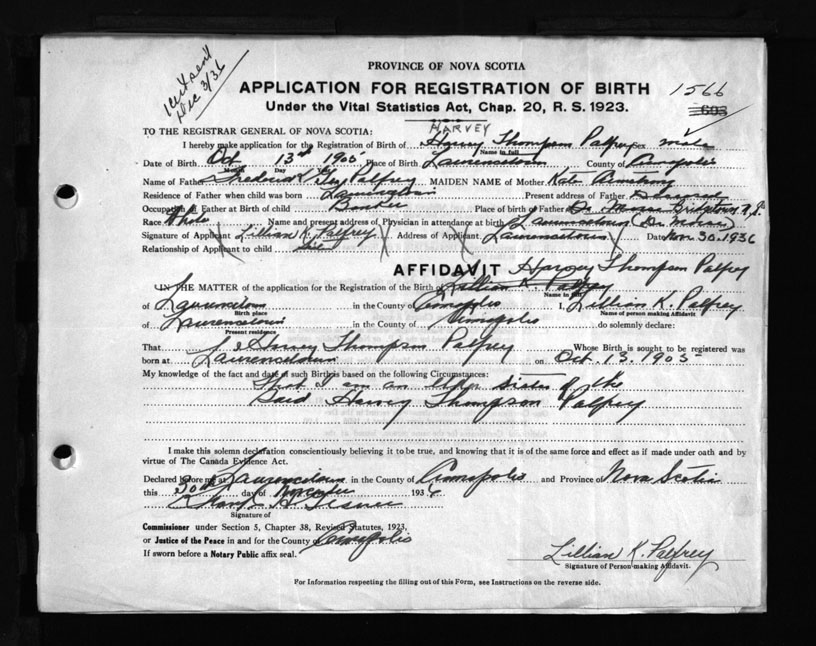 Dec 3/36
PROVINCE OF NOVA SCOTIA
APPLICATION FOR REGISTRATION OF BIRTH 1566
Under the Vital Statistics Act, Chap. 20, R. S. 1923. 603
HARVEY
TO THE REGISTRAR GENERAL OF NOVA SCOTIA:
I hereby make application for the Registration of Birth of Harvey Thompson Palfrey Sex male
Name in full
Date of Birth Oct 13th 1905 Place of Birth Laurencetown County of Annapolis
Month Day
Name of Father Frederick Palfrey MAIDEN NAME of Mother Kate
Residence of Father when child was born Present address of Father Deceased
Occupation of Father at Birth of child Place of birth of Father
Race White Name and present address of Physician in attendance at birth Dr. Morse Bridgetown N.S.
Signature of Applicant Lillian K. Palfrey Address of Applicant Laurencetown Date Nov 30. 1936
Relationship of Applicant to child
AFFIDAVIT Harvey Thompson Palfrey
IN THE MATTER of the application for the Registration of the Birth of Lillian K. Palfrey
Name in full
of Laurencetown in the County of Annapolis I, Lillian K. Palfrey
Birth place Name of person making Affidavit
of Laurencetown in the County of Annapolis do solemnly declare:
Present residence
That Harvey Thompson Palfrey Whose Birth is sought to be registered was
born at Laurencetown on Oct. 13. 1905
My knowledge of the fact and date of such Birth is based on the following Circumstances:
That I am an older sister of the
Said Harvey Thompson Palfrey
I make this solemn declaration conscientiously believing it to be true, and knowing that it is of the same force and effect as if made under oath and by
virtue of The Canada Evidence Act.
Declared before me at Laurencetown in the County of Annapolis and Province of Nova Scotia
this 30th day of November 1936
Signature of
Commissioner under Section 5, Chapter 38, Revised Statutes, 1923,
or Justice of the Peace in and for the County of Annapolis
If sworn before a Notary Public affix seal.
Lillian K. Palfrey
Signature of Person making Affidavit.
For Information respecting the filling out of this Form, see Instructions on the reverse side.